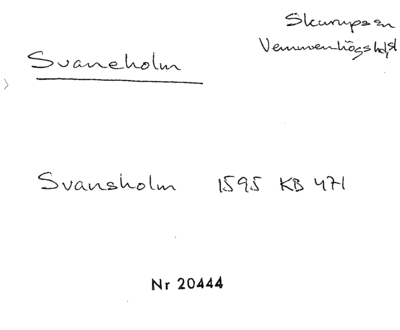 Skurups sn
Vemmenhögs hd
Svaneholm
Svansholm 1595 KB 471
Nr 20444